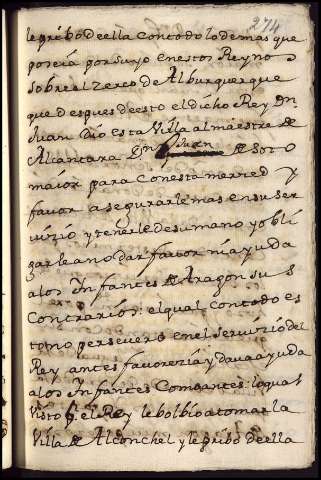 274
le pribo de ella con todo lo demas que
poseia por suyo en estos Reynos
sobre al zerco de Alburquerque
que despues de esto el dicho Rey Dn
Juan Dio esta Villa al maestre de
Alcantara Dn Juan de Soto
maior para con esta merred y
favor asegurarle mas en su ser
vizio y tenerle de su mano y obli
garle a no dar favor ni ayuda
a los Infantes de Aragon sus
Contrarios: el qual con todo es
to no persevero en el servizio del
Rey antes favorezia y dava ayuda
a los Infantes Comoantes: lo qual
Visto q el Rey le bolbio a tomar la
Villa de Alconchel y le pribo de ella